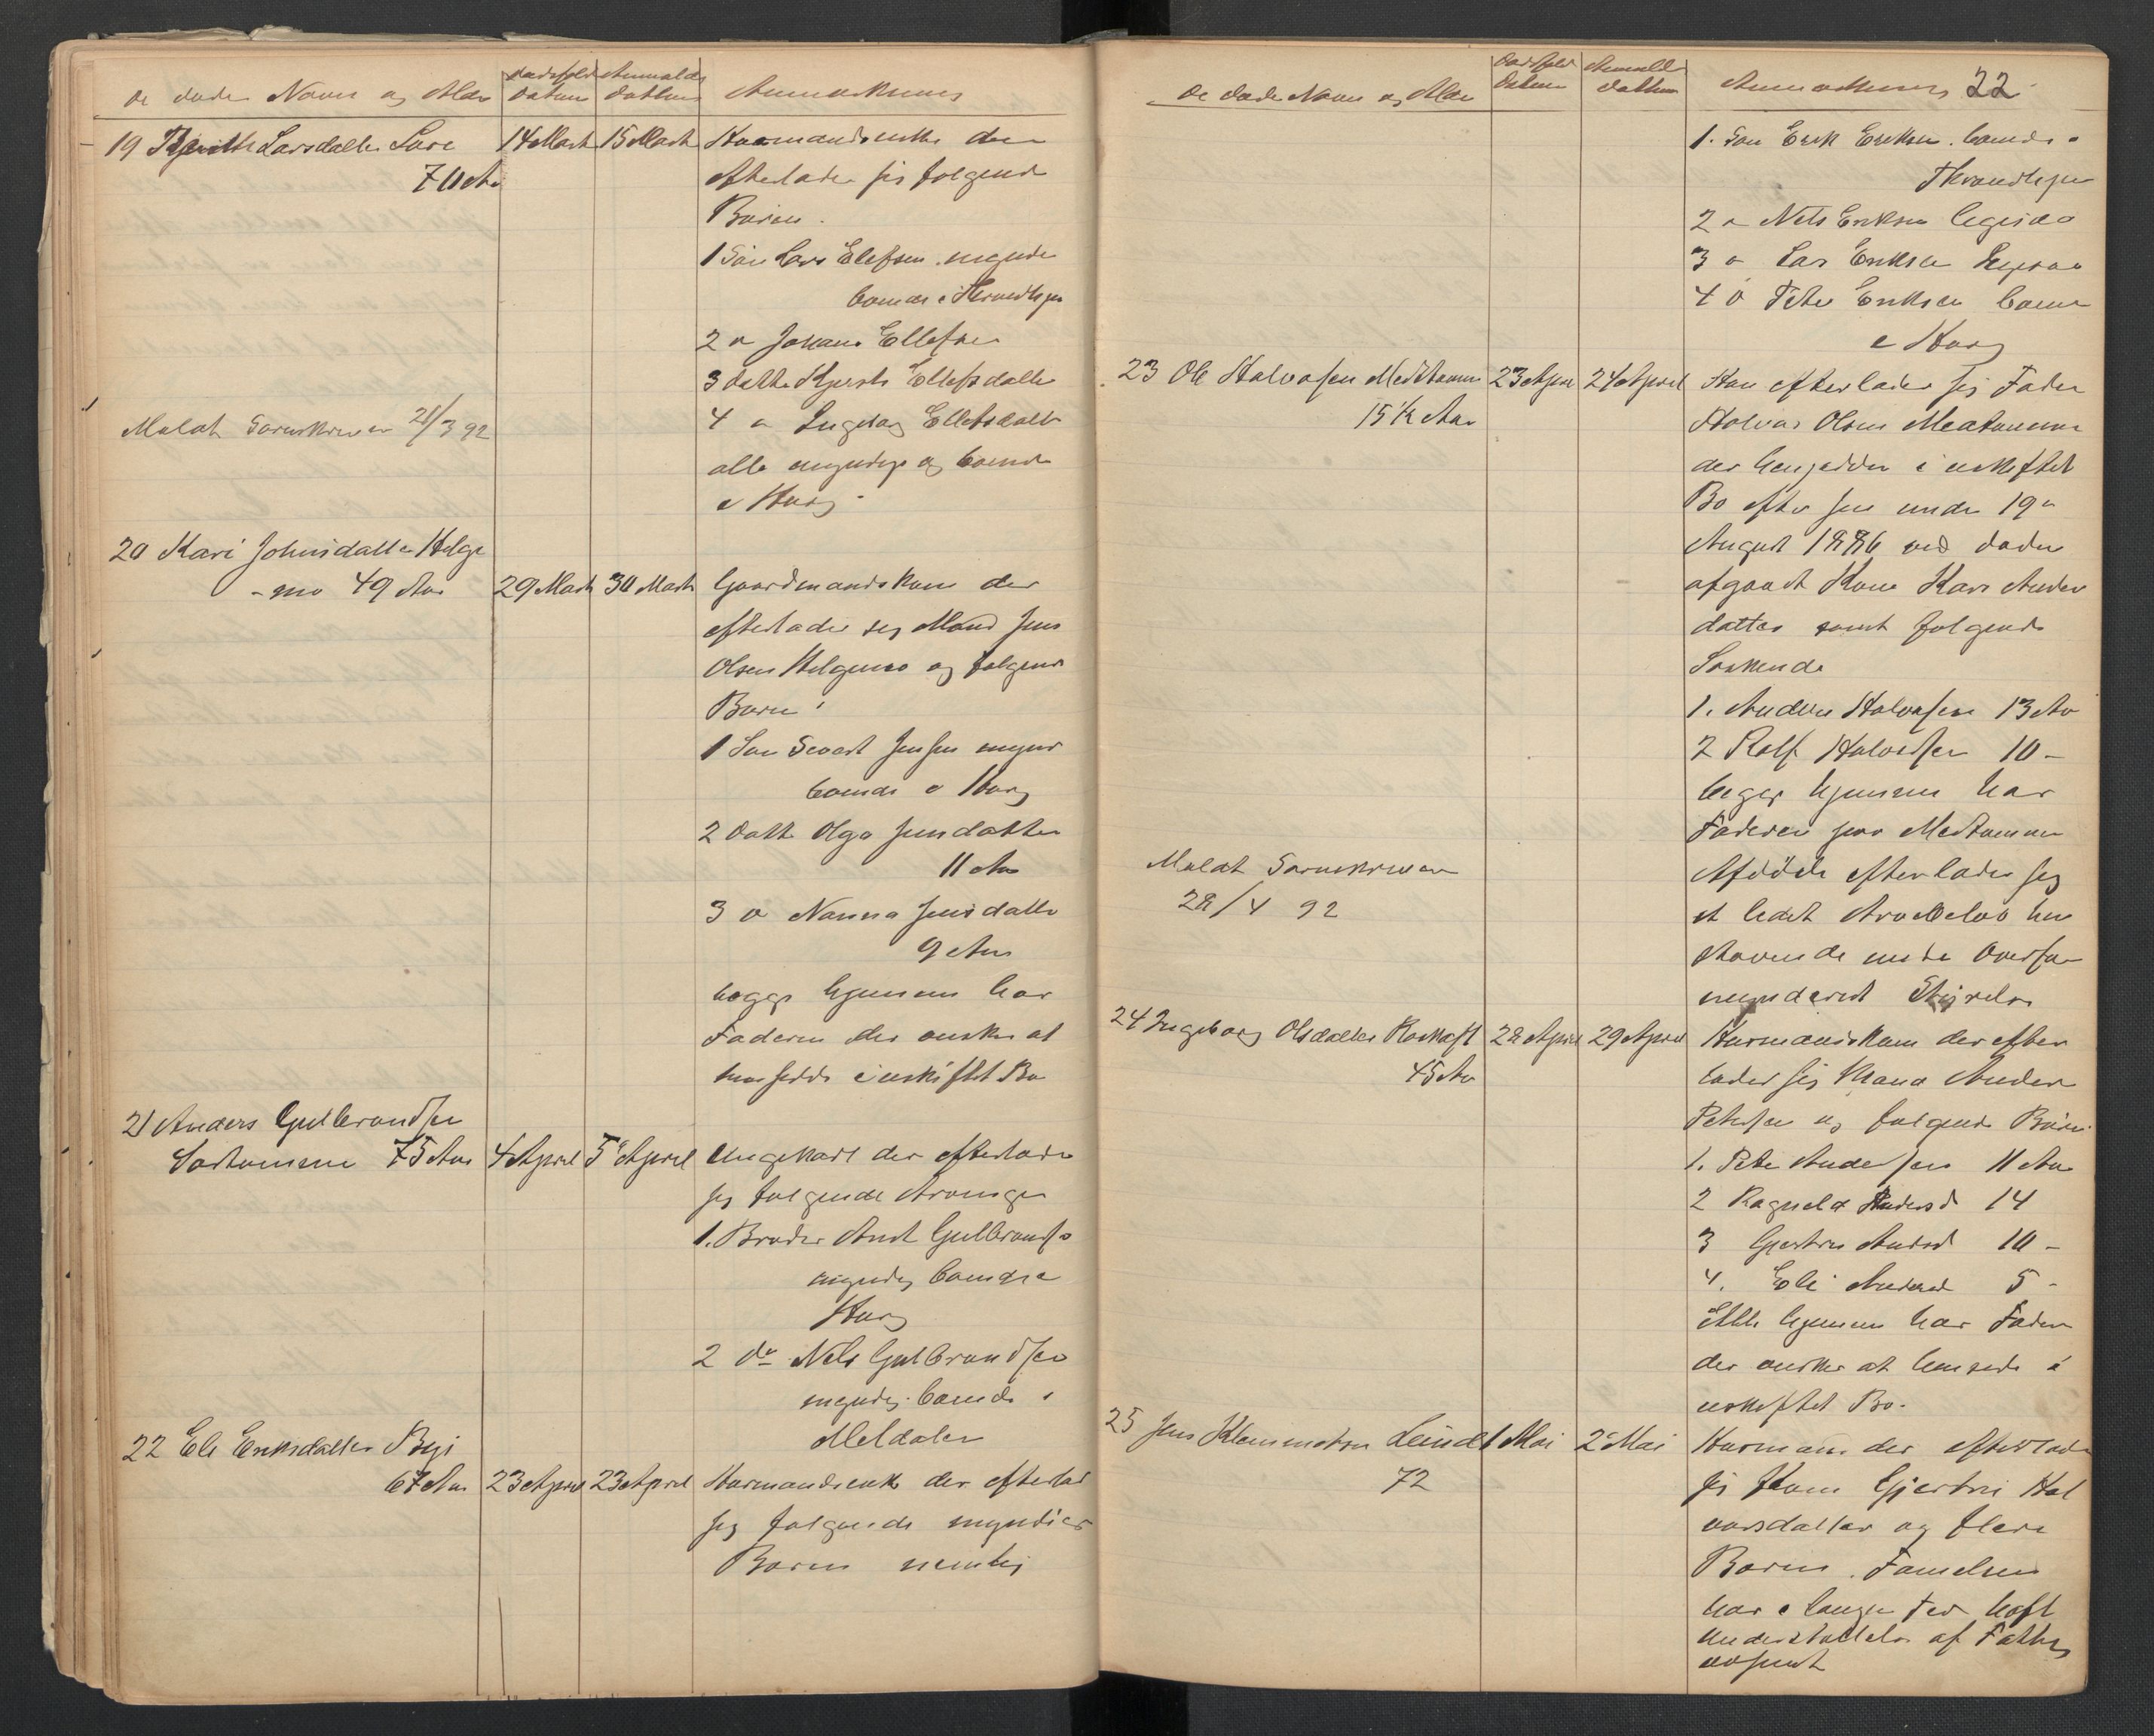 de døde Navn og Alder
Dødsfald Datum
Anmeldt Datum
Anmærkning
19 Larsdatter
70 Aar
14 Marts
15 Marts
Husmandsenke der
efterlader sig følgende
Børn.
1 Søn Lars Elefsen myndig
boende i Throndhjem
2 " Johans Ellefsen
3 datter Kjersti Ellefsdatter
4 " Ingebor Ellefsdatter
alle myndige og boende
i Horg.
Meldt Sorenskriveren 21/3 92
20 Kari Johnsdatter Helge
-mo 49 Aar
29 Marts
30 Marts
Gaardmandskone der
efterlader sig Mand Jens
Olsen Helgemo og følgende
Børn:
1 Søn Sivert Jensen myndig
boende i Horg
2 Datter Olga Jensdatter
11 Aar
3 " Nanna Jensdatter
9 Aar
begge hjemme hos
Faderen der ønsker at
hensidde i uskiftet Bo
21 Anders Gulbrandsen
75 Aar
4 April
5 April
Ungekarl der efterlader
sig følgende Arvinger
1. Broder Arnt Gulbrands.
myndig boende i
Horg
2 do Nels Gulbrandsen
myndig boende i
Meldalen
22 Eli Eriksdatter
67 Aar
23 April
23 April
Husmandsenke der efterlader
sig følgende myndige
Børn nemlig
de døde Navn og Alder
Dødsfald Datum
Anmeldt Datum
Anmærkning 22
1. Søn Erik Eriksen. boende i
Throndhjem
2 " Nels Eriksen ligesaa
3 " Lars Eriksen ligesaa
4 " Peter Eriksen boende
i Horg
23 Ole Halvorsen Medhammer
15 1/2 Aar
23 April
24 April
Han efterlader sig Fader
Halvor Olsen Medhammer
der hensidder i uskiftet
Bo efter sin under 19de
August 1886 ved døden
afgaaet Kone Kari Anders
datter samt følgende
Søskende
1. Anders Halvorsen 13 Aar
2 Rolf Halvorsen 10 -
begge hjemme hos
Faderen paa Medhammer
Afdøde efterlader sig
et lidet Arvebeløb hen
staaende under Overfor
mynderiets Styrelse
Meldt Sorenskriveren
28/4 92
24 Ingeborg Olsdatter Roskaft
45 Aar
28 April
29 April
Husmandskone der efter
lader sig Mand Anders
Petersen og følgende Børn
1. Peter Andersen 11 Aar
2 Ragnild Andersd 14
3 Gjertru Andersd 10 -
4. Eli Andersd 5 -
Alle hjemme hos Faderen
der ønsker at hensidde i
uskiftet Bo.
25 Jens Klemmetsen
72
1 Mai
2 Mai
Husmand der efterlader
sig Kone Gjertru Hal
vorsdatter og flere
Børn. Familien
har i længere Tid haft
Understøttelse af Fattig
væsenet